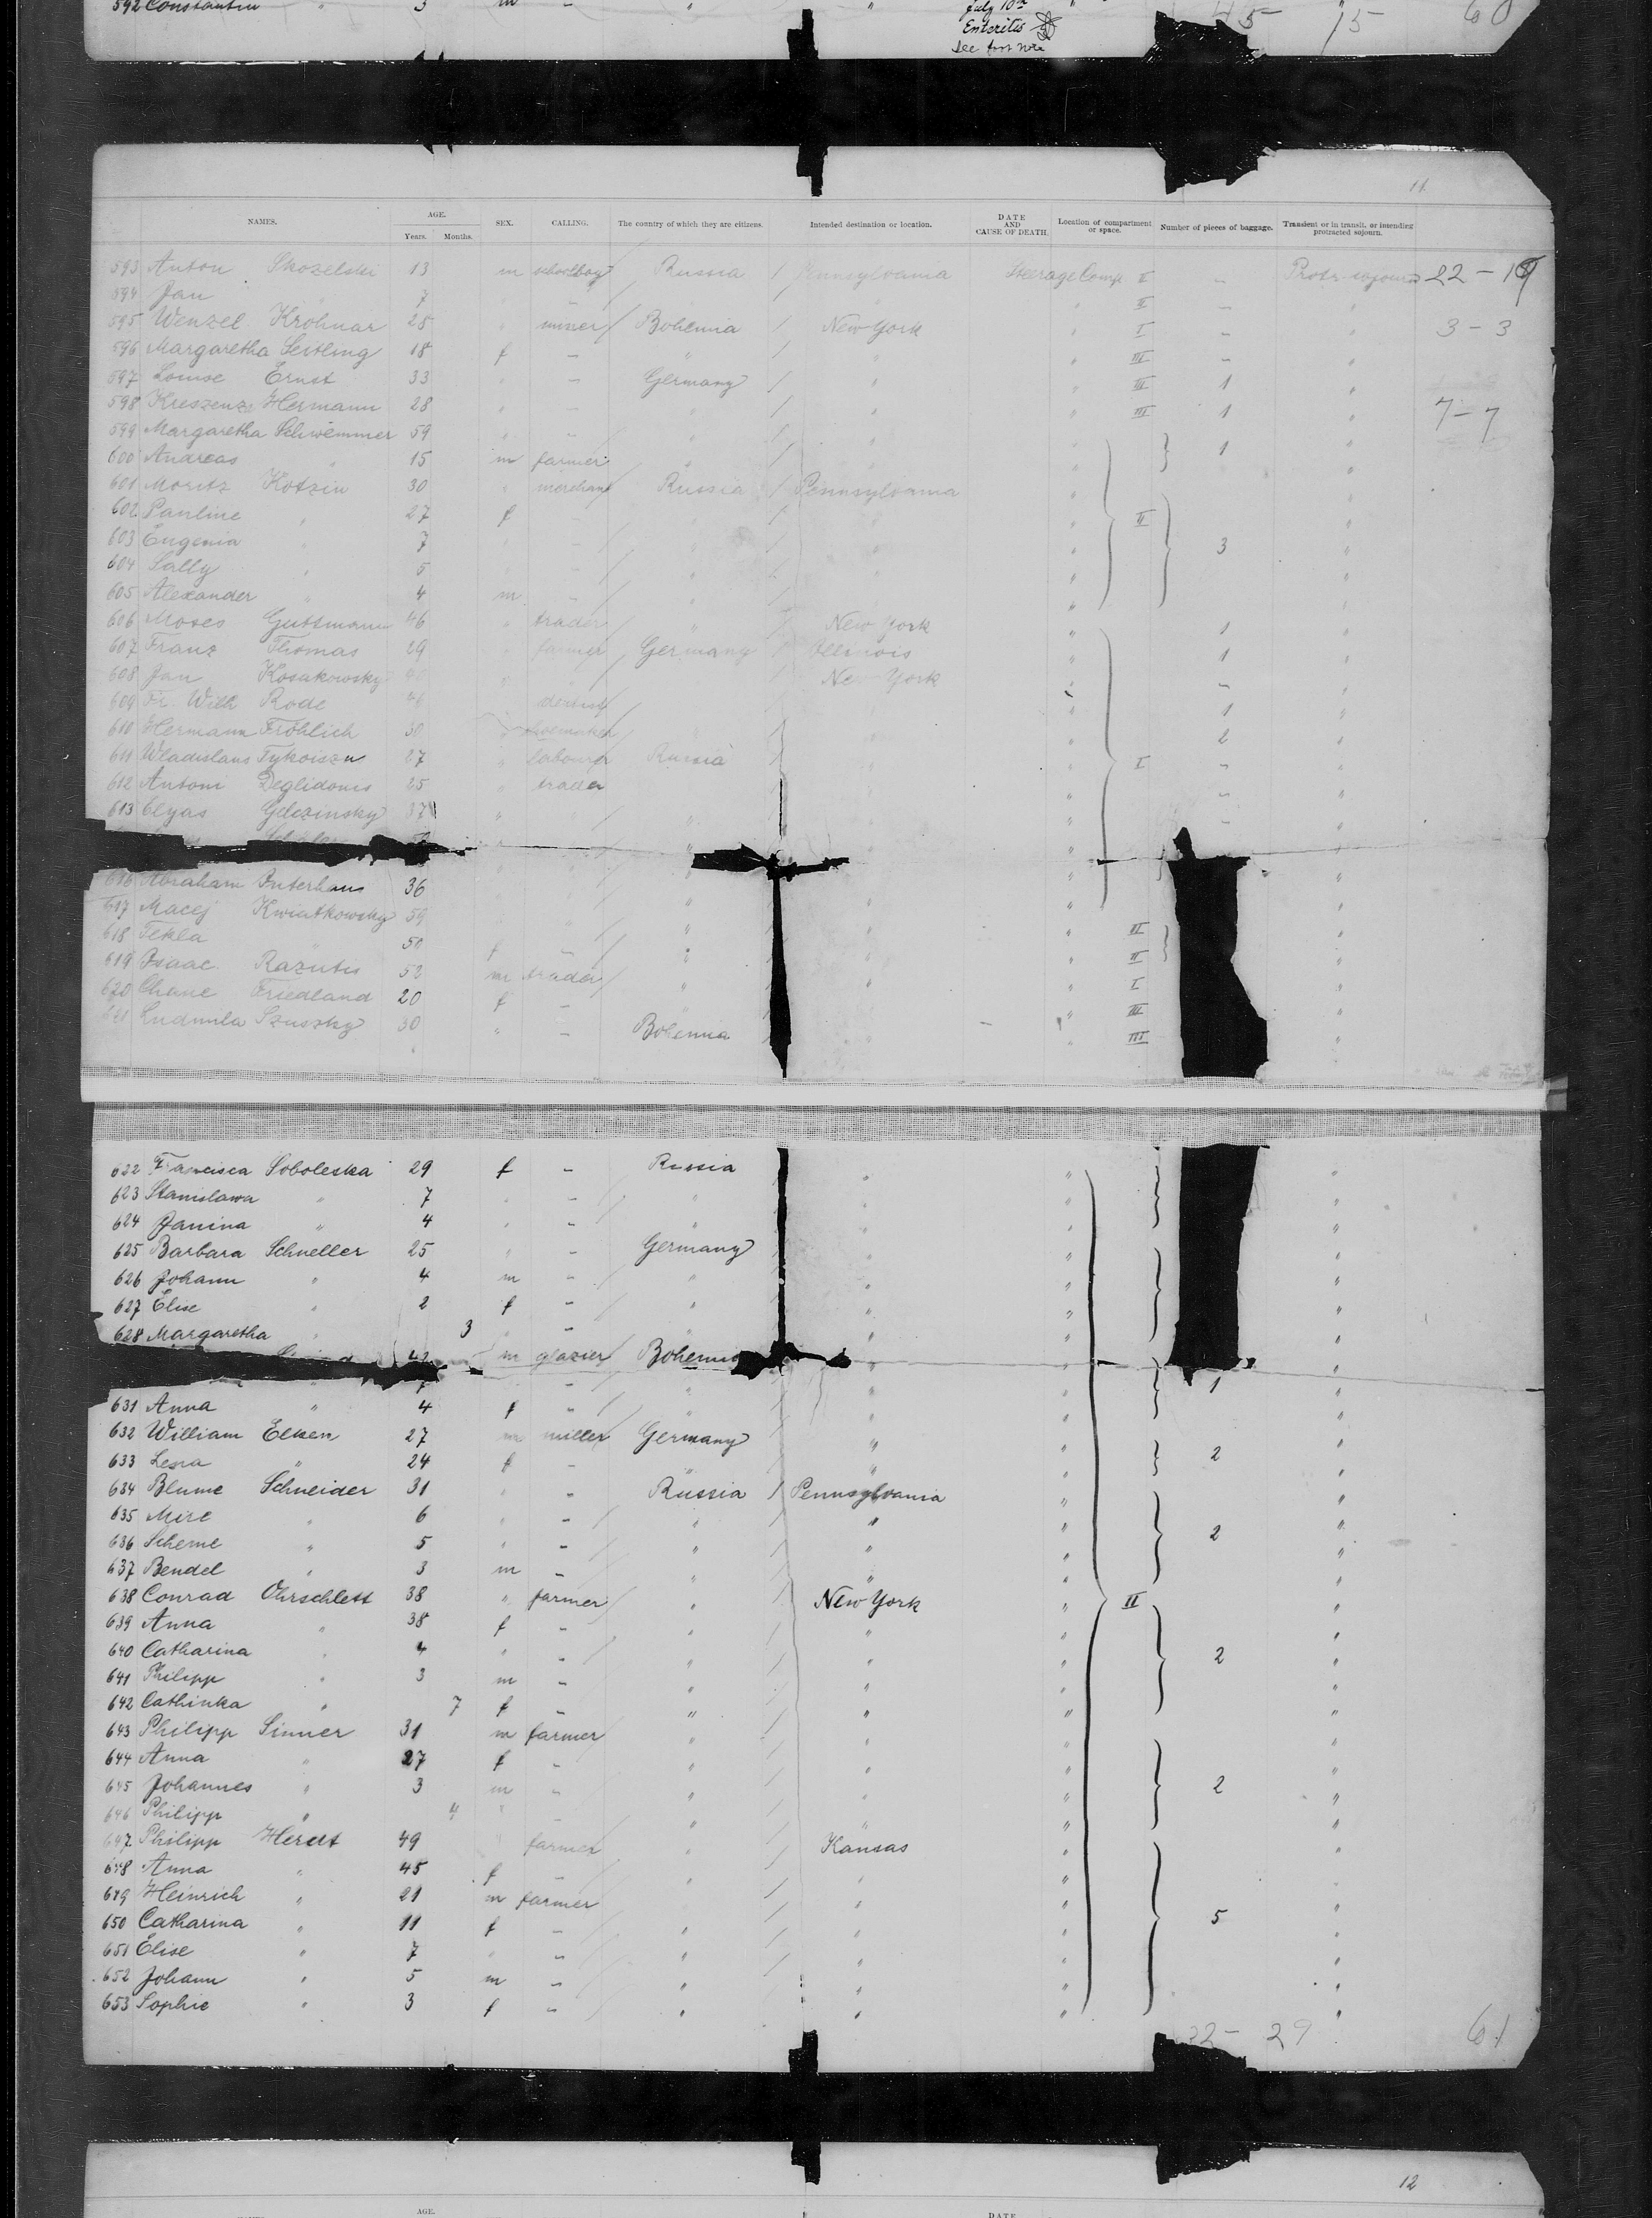 592 Constantin " 3 m - " " July 10th " 45 15 60
Enteritis
See foot note
11.
NAMES. AGE. SEX. CALLING. The country of which they are citizens. Intended destination or location. DATE AND CAUSE OF DEATH. Location of compartment or space. Number of pieces of baggage. Transient or in transit, or intending protracted sojourn.
Years. Months.
593 Anton Skozelski 13 m schoolboy Russia / Pennsylvania Steerage Comp II - Protr. sojourn 22 - 19
594 Jan " 7 " - " / " " II - "
595 Wenzel Krohnar 28 " miner Bohemia / New York " I - " 3 - 3
596 Margaretha Seitling 18 f - " / " " III - "
597 Louise Ernst 33 " - Germany / " " III 1 "
598 Kreszenz Hermann 28 " - " / " " III 1 " 7 - 7
599 Margaretha Schwemmer 59 " - " / " " 1 "
600 Andreas " 15 m farmer " / " " "
601 Moritz Kotzin 30 " merchant Russia / Pennsylvania " "
602 Pauline " 27 f - " / " " II "
603 Eugenia " 7 " - " / " " 3 "
604 Sally " 5 " - " / " " "
605 Alexander " 4 m - " / " " "
606 Moses Guttmann 46 " trader " / New York " 1 "
607 Franz Thomas 29 " farmer Germany / Illinois " 1 "
608 Jan Kosakowsky 40 " " / New York " - "
609 Fr. Wilh Rode " dentist " " 1 "
610 Hermann Fröhlich 30 " shoemaker " " " 2 "
611 Wladislaus Tykoiszn 27 " labourer Russia " " I - "
612 Antoni Deglidonis 25 " trader " " - "
613 Elyas Gelezinsky 37 " " " " " - "
616 Abraham Puterhaus 36 " " " " "
617 Macej Kwiatkowsky 59 " " " " " "
618 Tekla " 50 f - " " " II "
619 Isaac Razutis 52 m trader " " " II "
620 Chane Friedland 20 f - " " " I "
621 Ludmila Szuszky 30 " - Bohemia " III "
III
622 Francisca Soboleska 29 f - Russia " " "
623 Stanislawa " 7 " - " " " "
624 Janina " 4 " - " " " "
625 Barbara Schneller 25 " - Germany " " "
626 Johann " 4 m - " " " "
627 Elise " 2 f - " " " "
628 Margaretha " 3 " - " " " "
42 m glazier Bohemia " " "
" 7 " - " " " 1 "
631 Anna " 4 f - " " " "
632 William Elken 27 m miller Germany " " 2 "
633 Lena " 24 f - " " " "
634 Blume Schneider 31 " - Russia / Pennsylvania " "
635 Mire " 6 " - " / " " 2 "
636 Scheme " 5 " - " / " " "
637 Bendel " 3 m - " / " " "
638 Conrad Ohrschlett 38 " farmer " / New York " II "
639 Anna " 38 f - " / " " "
640 Catharina " 4 " - " / " " 2 "
641 Philipp " 3 m - " / " " "
642 Cathinka " 7 f - " / " " "
643 Philipp Sinner 31 m farmer " / " " "
644 Anna " 27 f - " / " " "
645 Johannes " 3 m - " / " " 2 "
646 Philipp " 4 " - " / " " "
647 Philipp Herdt 49 " farmer " / Kansas " "
648 Anna " 45 f - " / " " "
649 Heinrich " 21 m farmer " / " " "
650 Catharina " 11 f - " / " " 5 "
651 Elise " 7 " - " / " " "
652 Johann " 5 m - " " " "
653 Sophie " 3 f - " " " "
32 - 29 61
12
AGE. DATE